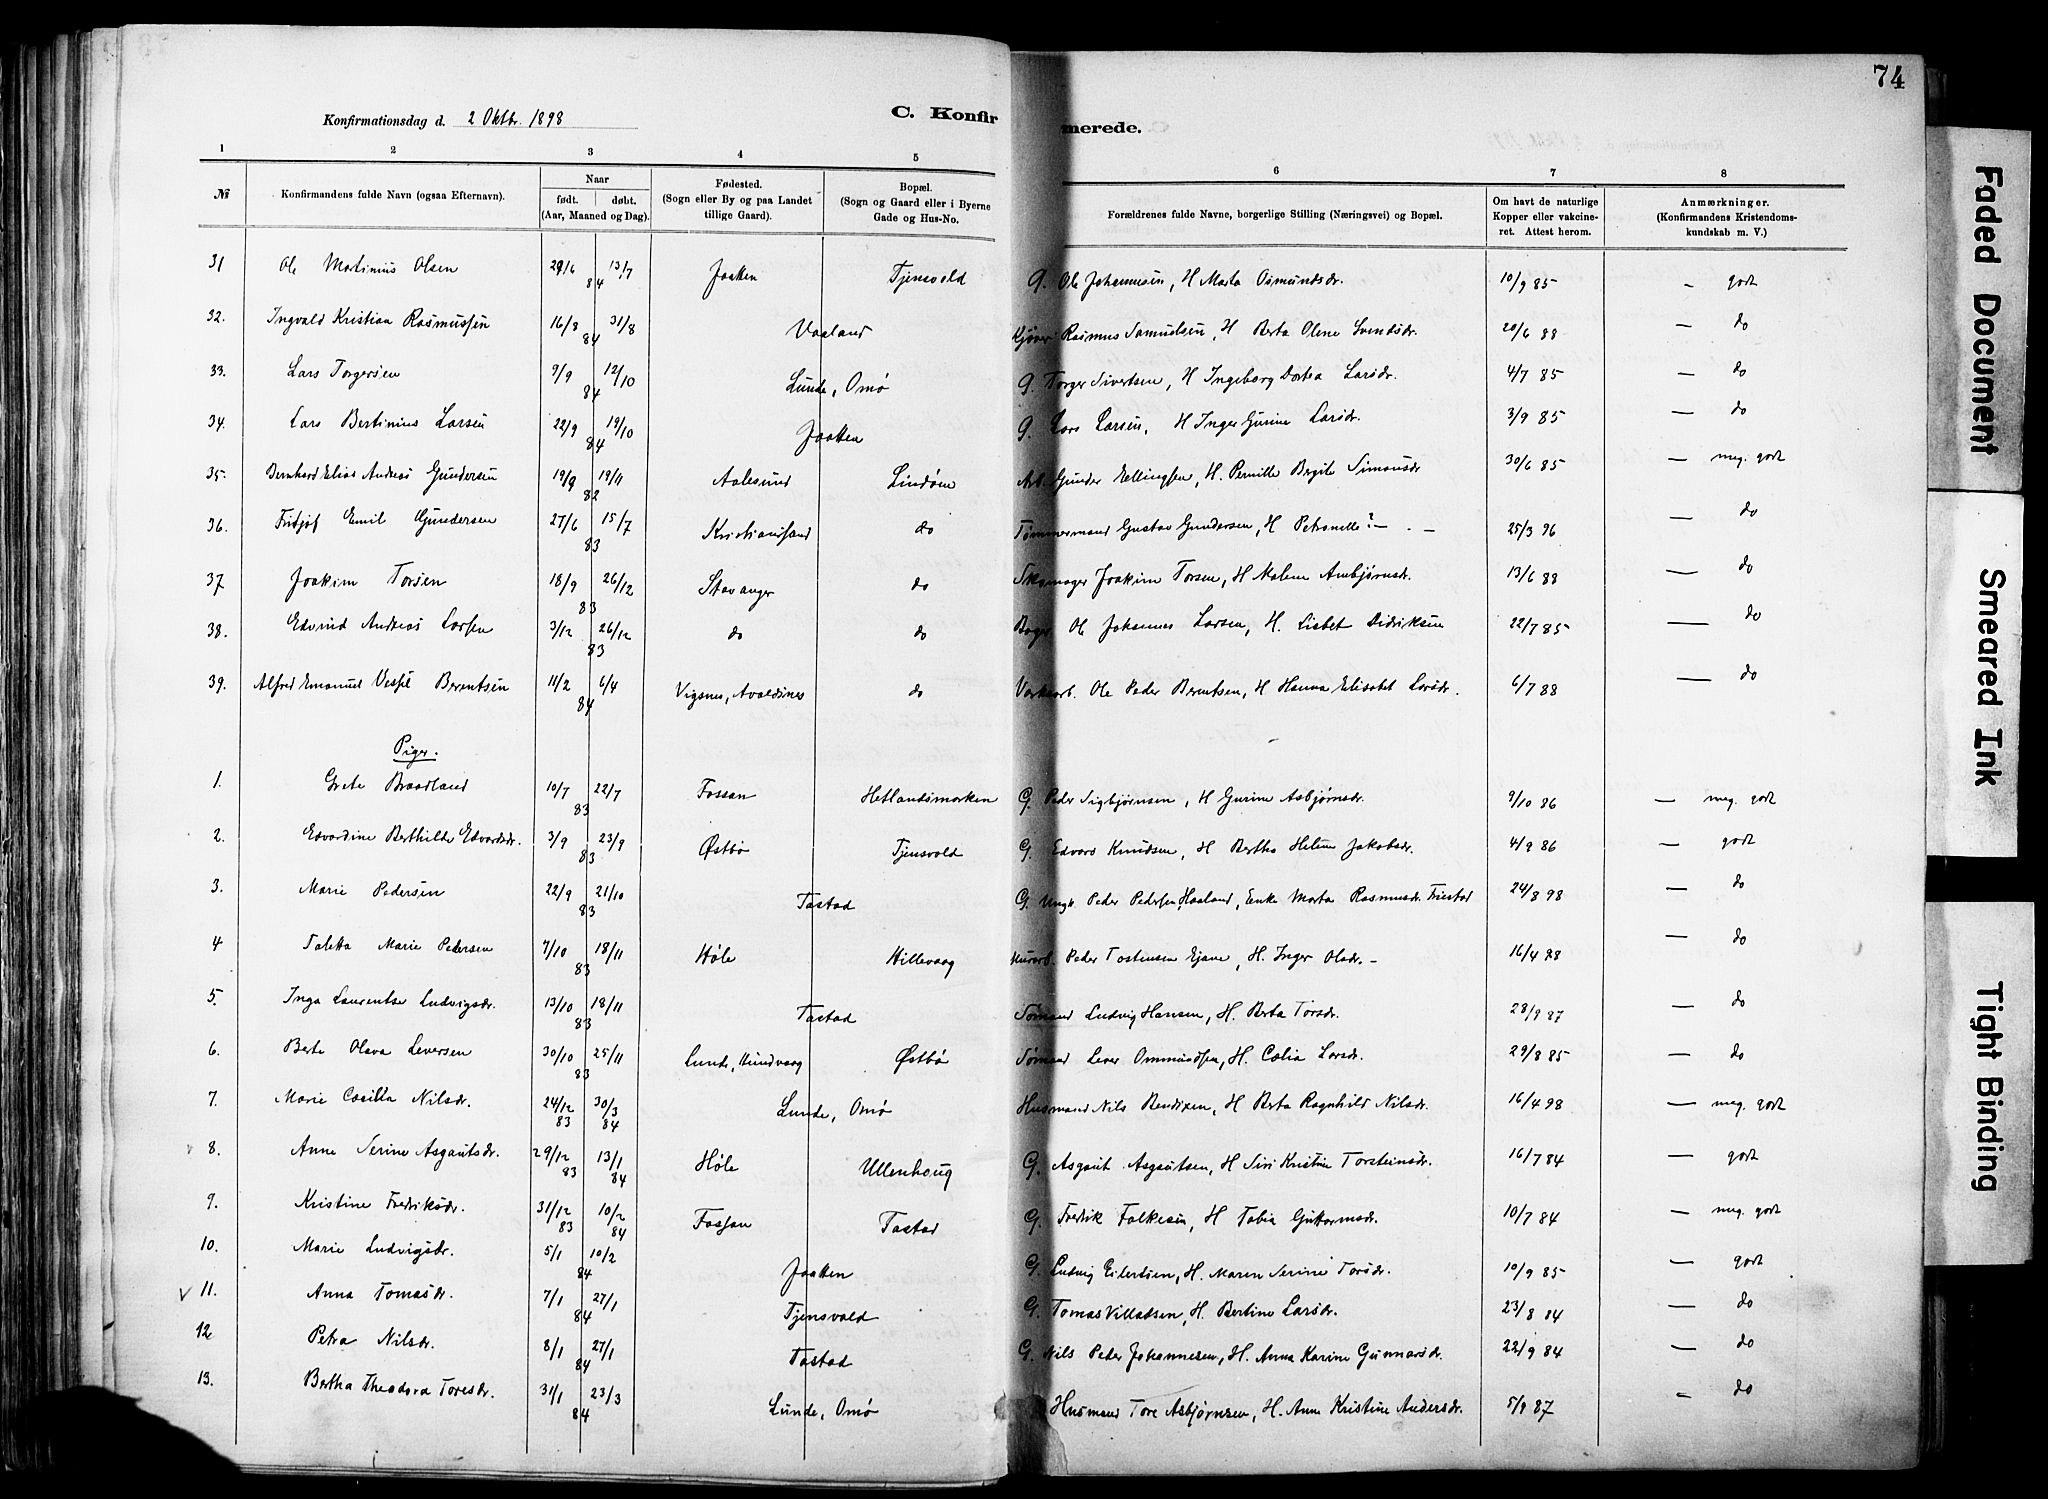 74
Konfirmationsdag d. 2 Oktbr. 1898 C. Konfirmerede.
1 2 3 4 5 6 7 8
№ Konfirmandens fulde Navn (ogsaa Efternavn). Naar født. døbt. (Aar, Maaned og Dag). Fødested. (Sogn eller By og paa Landet tillige Gaard). Bopæl. (Sogn og Gaard eller i Byerne Gade og Hus-No. Forældrenes fulde Navne, borgerlige Stilling (Næringsvei) og Bopæl. Om havt de naturlige Kopper eller vakcineret. Attest herom. Anmærkninger. (Konfirmandens Kristendomskundskab m. V.)
31 Ole Martinius Olsen 29/6 13/7 84 Jaatten Tjensvold G. Ole Johannesen, H Marta Osmundsdr. 10/9 85 – godt
32. Ingvald Kristian Rasmussen 16/8 31/8 84 Vaaland Rasmus Samuelsen, H Berta Oline Svendsdr. 20/6 88 – do
33. Lars Torgersen 9/9 12/10 84 Lunde, Omø G. Torger Sivertsen, H Ingeborg Dortea Larsdr. 4/7 85 – do
34. Lars Bertinius Larsen 22/9 19/10 84 Jaatten G. Lars Larsen, H Inger Gurine Larsdr. 3/9 85 – do
35. Bernhard Elias Andreas Gundersen 19/9 19/11 82 Aalesund Lindøen Arb. Gunder Ellingsen, H. Pernille Bergite Simonsdr 30/6 85 – meg. godt
36. Fritjof Emil Gundersen 27/6 15/7 83 Kristiansand do Tømmermand Gustav Gundersen, H Petronelle? – . – 25/3 96 – do
37 Joakim Torsen 18/9 26/12 83 Stavanger do Skomager Joakim Torsen, H Malene Ambjørnsdr. 13/6 88 – do
38. Edvind Andreas Larsen 3/12 26/12 83 do do Bager Ole Johannes Larsen, H. Lisbet Didriksen 22/7 85 – do
39. Alfred Emanuel Berentsen 11/2 6/4 84 Vigsnes, Avaldsnes do Ole Peder Berentsen, H Hanna Elisabet Larsdr. 6/7 88 – do
Piger.
1. Grete Braadland 10/7 22/7 83 Fossan Hetlandsmarken G. Peder Sigbjørnsen, H Gurine Asbjørnsdr. 9/10 86 – meg. godt
2. Edvardine Berthilde Edvardsdr. 3/9 23/9 83 Østbø Tjensvold G. Edvard Knudsen, H Bertha Helene Jakobsdr. 4/9 86 – godt
3. Marie Pedersen 22/9 21/10 83 Tastad G. Ungk. Peder Pedersen Haaland, Enke Marta Rasmusdr. Friestad 24/8 98 – do
4 Taletta Marie Pedersen 7/10 18/11 83 Høle Hillevaag Murarb. Peder Tostensen Ejane, H. Inger Olsdr. – 16/4 98 – do
5. Inga Laurentse Ludvigsdr. 13/10 18/11 83 Tastad Sømand Ludvig Hansen, H. Berta Torsdr. 28/9 87 – do
6. Berte Olava Leversen 30/10 25/11 83 Lunde, Hundvaag Østbø Sømand Lever Ommundsen, H. Cælia Larsdr. 29/8 85 – do
7. Marie Cæcilia Nilsdr. 24/12 83 30/3 84 Lunde, Omø Husmand Nils Bendixen, H Berta Ragnhild Nilsdr. 16/4 98 – meg. godt
8. Anne Serine Asgautsdr. 29/12 83 13/1 84 Høle Ullenhoug G. Asgaut Asgautsen, H Siri Kristine Torsteinsdr. 16/7 84 – godt
9. Kristine Fredriksdr. 31/12 83 10/2 84 Fossan Tastad G. Fredrik Falkesen, H Tobia Guttormsdr. 10/7 84 – meg. godt
10. Marie Ludvigsdr. 5/1 10/2 84 Jaatten G. Ludvig Eilertsen, H. Maren Serine Torsdr. 10/9 85 – godt
√ 11. Anna Tomasdr. 7/1 27/1 84 Tjensvold G. Tomas Villadsen, H. Bertine Larsdr. 23/8 84 – do
12 Petra Nilsdr. 8/1 27/1 84 Tastad G. Nils Peder Johannesen, H. Anna Karine Gunnarsdr. 22/9 84 – do
13. Bertha Theodora Toresdr. 31/1 23/3 84 Lunde, Omø Husmand Tore Asbjørnsen, H. Anne Kristine Andersdr. 5/8 87 – do
Faded Document
Smeared Ink
Tight Binding